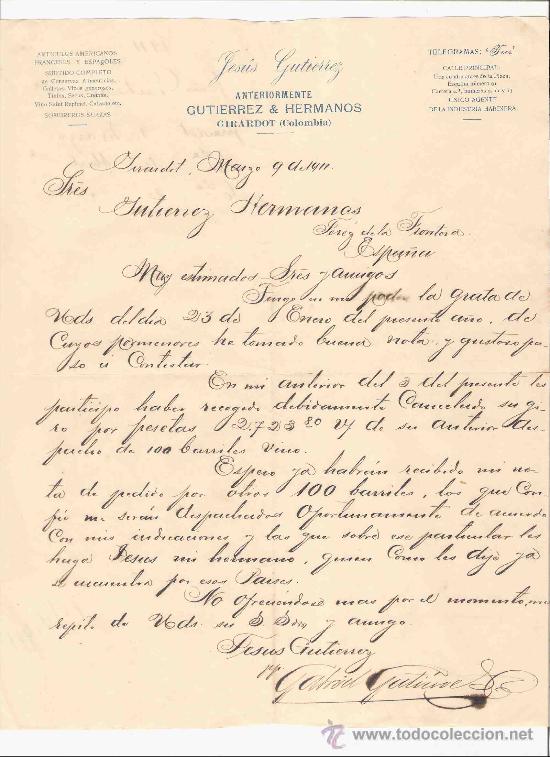 ARTICULOS AMERICANOS
FRANCESES Y ESPAÑOLES
SURTIDO COMPLETO
de Conservas Alimenticias,
Galletas, Vinos generosos,
Tintos, Secos, Cremas,
Vino Saint Raphael, Calzado etc.
SOMBREROS SUAZAS
Jesús Gutierrez
ANTERIORMENTE
GUTIERREZ & HERMANOS
GIRARDOT (Colombia)
TELEGRAMAS:
CALLE PRINCIPAL
Una cuadra antes de la Plaza,
Esquina número 91
UNICO AGENTE
DE LA INDUSTRIA HARINERA
Girardot, Marzo 9 de 1911.
Sres
Gutierrez Hermanos
Jerez de la Frontera
España
Muy estimados Sres y amigos
Tengo en mi poder la grata de
Uds del dia 23 de Enero del presente año, de
Cuyos pormenores he tomado buena nota y gustoso pa-
so á Contestar.
En mi anterior del 3 del presente les
participo haber recogido debidamente Cancelado su gi-
ro por pesetas 2.723.20 V/ de su anterior des-
pacho de 100 barriles Vino.
Espero ya habrán recibido mi no-
ta de pedido por otros 100 barriles, los que Con-
fio me serán despachados Oportunamente de acuerdo
Con mis indicaciones y las que sobre ese particular les
haga Jesus mi hermano, quien Como les dije ya
se encuentra por esos Paises.
No Ofreciendose mas por el momento, me
repito de Uds. su S. S. y amigo.
Jesus Gutierrez
pp. Gabriel Gutierrez
todocoleccion.net